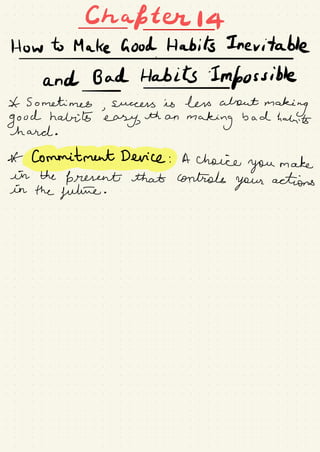 Chapter 14
How to Make Good Habits Inevitable
and Bad Habits Impossible
* Sometimes, success is less about making
good habits easy, than making bad habits
hard.
* Commitment Device: A choice you make
in the present that controls your actions
in the future.